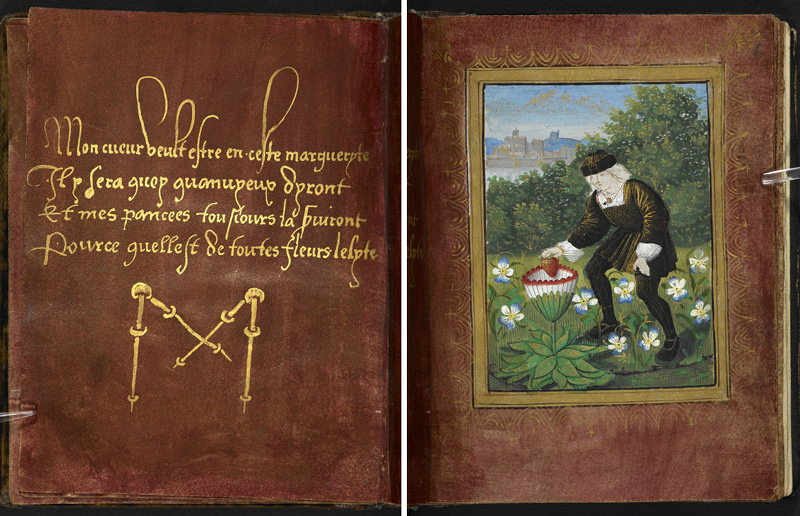 Mon cueur veult estre en ceste marguerite
Il y sera quoy quanvyeux dyront
Et mes pancees tousiours la suiront
Pource quellest de toutes fleurs leslyte
M